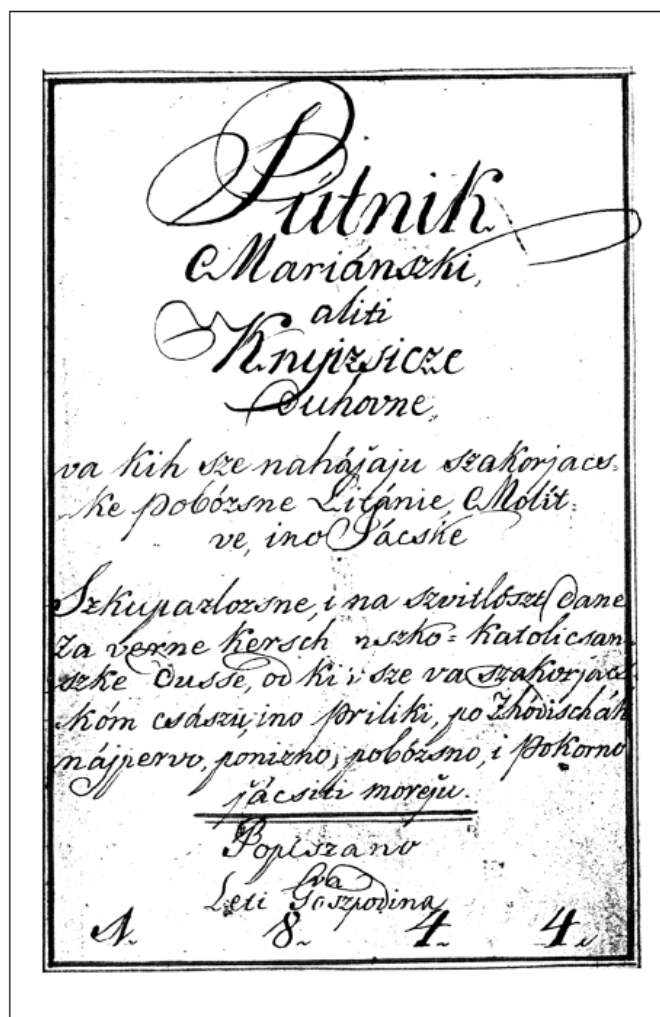 Pútnik
Mariánszki,
aliti
Knyizsicze
Duhovne,
va kih sze nahájaju szakorjacs-
ke pobózsne Litánie, Molit-
ve, ino Jácske
Szkupazlozsne, i na szvitlószt dane
Za verne nszko-katolicsan-
szke Dusse, od sze va szakorjacs
kóm császu, ino priliki, po Zhodischáh
nájpervo, ponizno, pobózsno, i pokorno
jácsiti moreju.
Popiszano
va
Leti Goszpodina
1. 8. 4. 4.